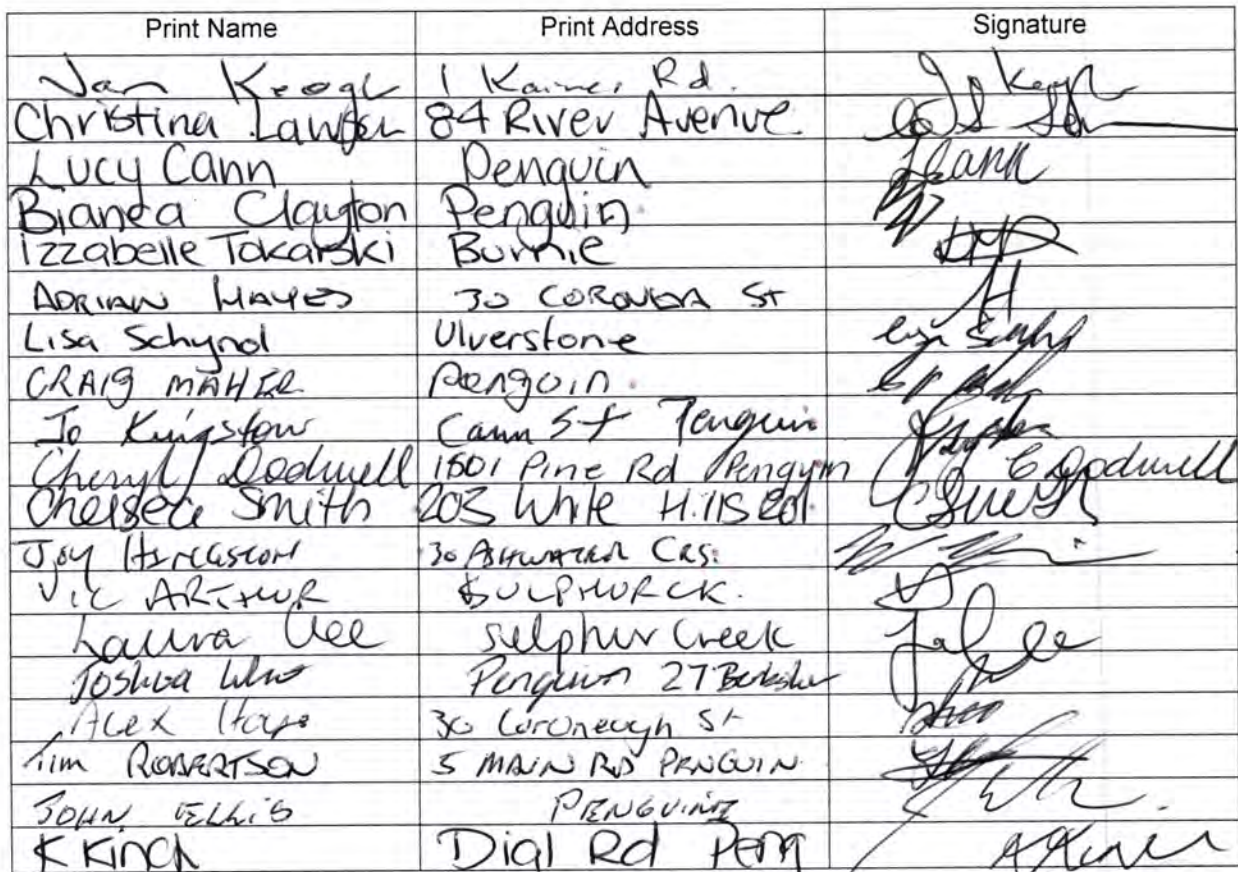 Print Name Print Address Signature
Jan Keogh 1 Rd. Keogh
Christina 84 River Avenue
Lucy Cann Penguin LCann
Bianca Clayton Penguin
Izzabelle Tokarski Burnie
ADRIAN HAYES 30 ST
Lisa Schynol Ulverstone Lisa
CRAIG MAHER Penguin
Jo Kingston Cann St Penguin
Cheryl Dodwell 1801 Pine Rd Penguin C Dodwell
Chelsea Smith 203 White Hills Rd. CSmith
Joy 30 CRS.
VIC ARTHUR SULPHUR CK.
Laura Lee Sulphur Creek
Joshua Penguin 27
Alex Hays 30 Coroneagh St
Tim ROBERTSON 5 MAIN RD PENGUIN
JOHN ELLIS PENGUINE
K Kinch Dial Rd Peng